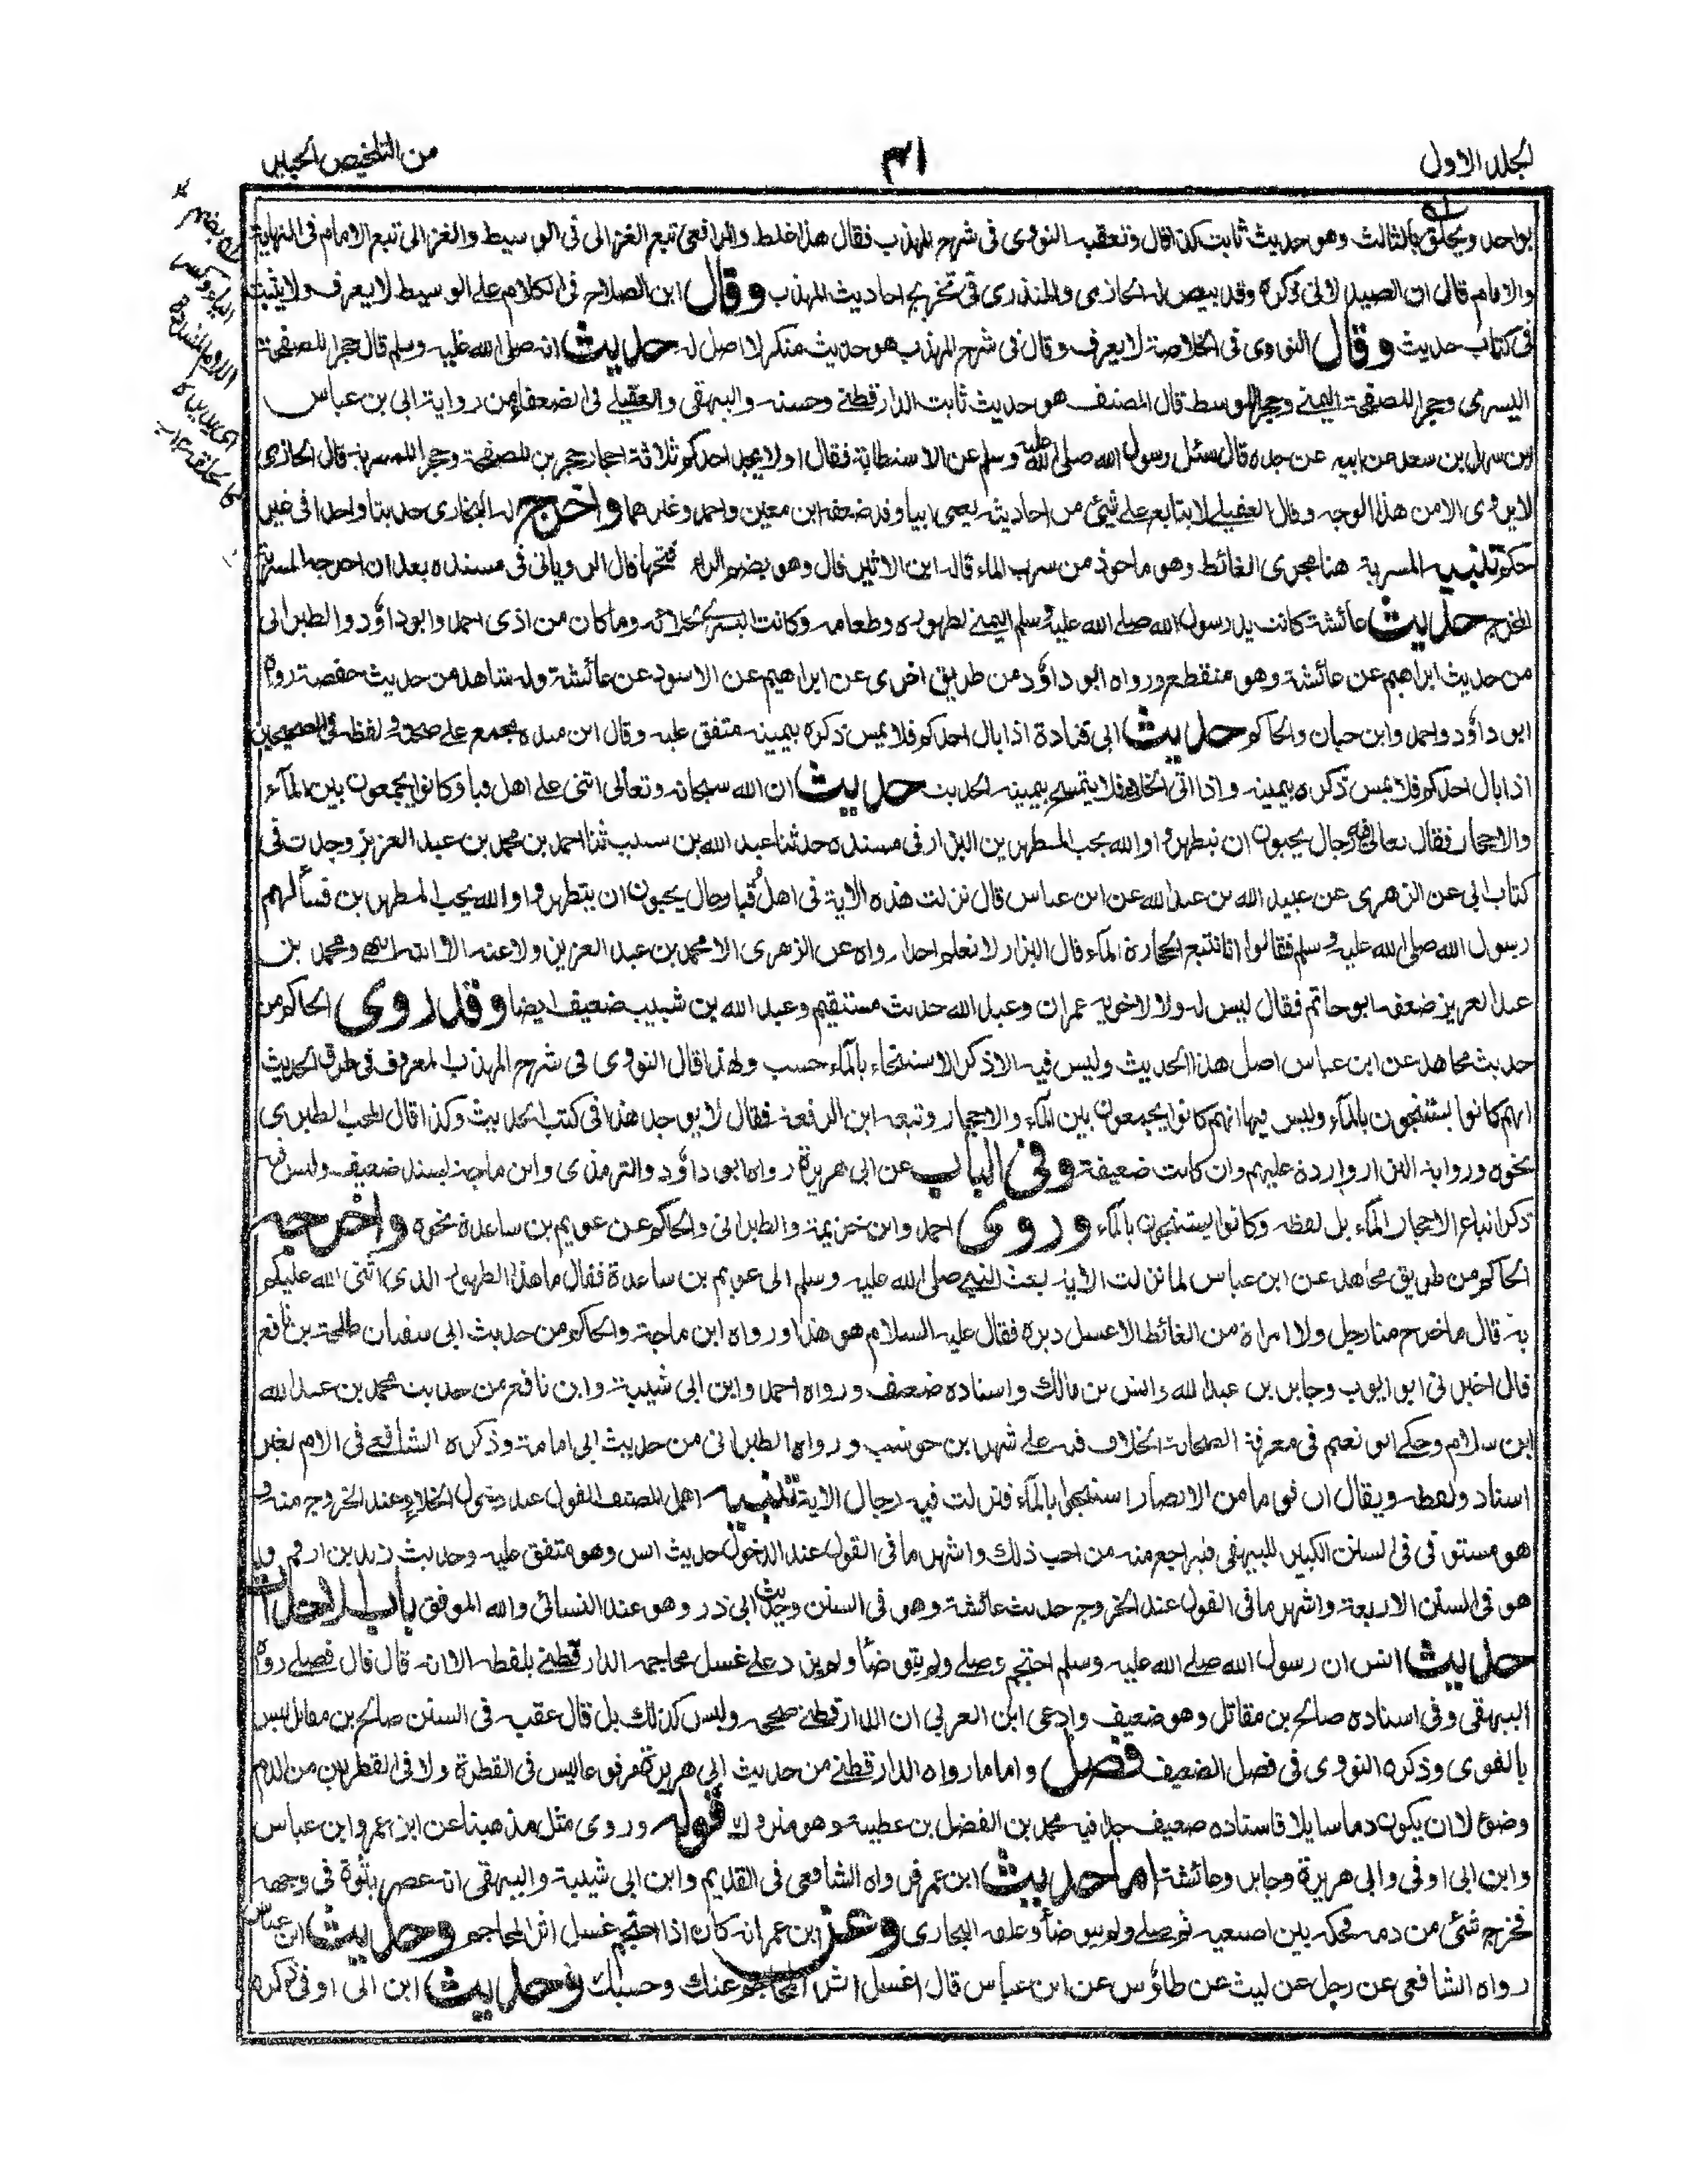 الجلد الاول
٤١
من التلخيص الحبير
بواحد ويحلق بالثالث وهو حديث ثابت كذا قال وتعقبه النووى فى شرح المهذب فقال هذا غلط والرافعى تبع الغزالى فى الوسيط والغزالى تبع الامام فى النهاية
والامام قال ان الصيدلانى ذكره وقد بيض له الحازمى والمنذرى فى تخريج احاديث المهذب وقال ابن الصلاح فى الكلام على الوسيط لا يعرف ولا يثبت
فى كتاب حديث وقال النووى فى الخلاصة لا يعرف وقال فى شرح المهذب هو حديث منكر لا اصل له حديث انه صلى الله عليه وسلم قال حجر للصفحة
اليسرى وحجر للصفحة اليمنى وحجر للوسط قال المصنف هو حديث ثابت الدارقطنى وحسنه والبيهقى والعقيلى فى الضعفاء من رواية ابى بن عباس
ابن سهل بن سعد عن ابيه عن جده قال سئل رسول الله صلى الله عليه وسلم عن الاستطابة فقال اولا يجد احدكم ثلاثة احجار حجرين للصفحة وحجر للمسربة قال الحازمى
لا يروى الا من هذا الوجه وقال العقيلى لا يتابع على شئ من احاديثه يعنى ابيا وقد ضعفه ابن معين واحمد وغيرهما واخرج له البخارى حديثا واحدا فى غير
حكم تنبيه المسربة هنا مجرى الغائط وهو ماخوذ من سرب الماء قاله ابن الاثير قال وهو بضم الراء وفتحها قال الرويانى فى مسنده بعد ان اخرجه المسربة
المخرج حديث عائشة كانت يد رسول الله صلى الله عليه وسلم اليمنى لطهوره وطعامه وكانت اليسرى لخلائه وما كان من اذى احمد وابو داؤد والطبرانى
من حديث ابراهيم عن عائشة وهو منقطع ورواه ابو داؤد من طريق اخرى عن ابراهيم عن الاسود عن عائشة وله شاهد من حديث حفصة رواه
ابو داؤد واحمد وابن حبان والحاكم حديث ابى قتادة اذا بال احدكم فلا يمس ذكره بيمينه متفق عليه وقال ابن منده مجمع على صحته ولفظه فى الصحيحين
اذا بال احدكم فلا يمس ذكره بيمينه واذا اتى الخلاء فلا يتمسح بيمينه الحديث حديث ان الله سبحانه وتعالى اثنى على اهل قبا وكانوا يجمعون بين المآء
والاحجار فقال تعالى فيه رجال يحبون ان يتطهروا والله يحب المطهرين البزار فى مسنده حدثنا عبد الله بن شبيب ثنا احمد بن محمد بن عبد العزيز وجدت فى
كتاب ابى عن الزهرى عن عبيد الله بن عبد الله عن ابن عباس قال نزلت هذه الآية فى اهل قبا رجال يحبون ان يتطهروا والله يحب المطهرين فسألهم
رسول الله صلى الله عليه وسلم فقالوا انا نتبع الحجارة المآء قال البزار لا نعلم احدا رواه عن الزهرى الا محمد بن عبد العزيز ولا عنه الا ابنه انتهى ومحمد بن
عبد العزيز ضعفه ابو حاتم فقال ليس له ولا لاخويه عمران وعبد الله حديث مستقيم وعبد الله بن شبيب ضعيف ايضا وقد روى الحاكم من
حديث مجاهد عن ابن عباس اصل هذا الحديث وليس فيه الا ذكر الاستنجاء بالمآء حسب ولهذا قال النووى فى شرح المهذب المعروف فى طرق الحديث
انهم كانوا يستنجون بالمآء وليس فيها انهم كانوا يجمعون بين المآء والاحجار وتبعه ابن الرفعة فقال لا يوجد هذا فى كتب الحديث وكذا قال المحب الطبرى
نحوه ورواية البزار واردة عليهم وان كانت ضعيفة وفى الباب عن ابى هريرة رواه ابو داؤد والترمذى وابن ماجة بسند ضعيف وليس فيه
ذكر اتباع الاحجار المآء بل لفظه وكانوا يستنجون بالمآء وروى احمد وابن خزيمة والطبرانى والحاكم عن عويم بن ساعدة نحوه واخرجه
الحاكم من طريق مجاهد عن ابن عباس لما نزلت الآية بعث النبى صلى الله عليه وسلم الى عويم بن ساعدة فقال ما هذا الطهور الذى اثنى الله عليكم
به قال ما خرج منا رجل ولا امراة من الغائط الا غسل دبره فقال عليه السلام هو هذا ورواه ابن ماجة والحاكم من حديث ابى سفيان طلحة بن نافع
قال اخبرنى ابو ايوب وجابر بن عبد الله وانس بن مالك واسناده ضعيف ورواه احمد وابن ابى شيبة وابن نافع من حديث محمد بن عبد الله
ابن سلام وحكى ابو نعيم فى معرفة الصحابة الخلاف فيه على شهر بن حوشب ورواه الطبرانى من حديث ابى امامة وذكره الشافعى فى الام بغير
اسناد ولفظه ويقال ان قوما من الانصار استنجوا بالمآء فنزلت فيه رجال الاية تنبيه اهمل المصنف القول عند دخول الخلاء وعند الخروج منه و
هو مستوفى فى السنن الكبير للبيهقى فليراجع منه من احب ذلك واشهر ما فى القول عند الدخول حديث انس وهو متفق عليه وحديث زيد بن ارقم و
هو فى السنن الاربعة واشهر ما فى القول عند الخروج حديث عائشة وهو فى السنن وحديث ابى ذر وهو عند النسائى والله الموفق باب الاحداث
حديث انس ان رسول الله صلى الله عليه وسلم احتجم وصلى ولم يتوضأ ولم يزد على غسل محاجمه الدارقطنى بلفظه الا انه قال قال فصلى رواه
البيهقى وفى اسناده صالح بن مقاتل وهو ضعيف وادعى ابن العربى ان الدارقطنى صححه وليس كذلك بل قال عقبه فى السنن صالح بن مقاتل ليس
بالقوى وذكره النووى فى فصل الضعيف فصل واما ما رواه الدارقطنى من حديث ابى هريرة مرفوعا ليس فى القطرة ولا فى القطرتين من الدم
وضوء الا ان يكون دما سايلا فاسناده ضعيف جدا فيه محمد بن الفضل بن عطية وهو متروك قوله وروى مثل مذهبنا عن ابن عمر وابن عباس
وابن ابى اوفى وابى هريرة وجابر وعائشة اما حديث ابن عمر فرواه الشافعى فى القديم وابن ابى شيبة والبيهقى انه عصر بثرة فى وجهه
فخرج شئ من دمه فحكه بين اصبعيه ثم صلى ولم يتوضأ وعلقه البخارى وعن ابن عمر انه كان اذا احتجم غسل اثر المحاجم وحديث ابن عباس
رواه الشافعى عن رجل عن ليث عن طاؤس عن ابن عباس قال اغسل اثر المحاجم عنك وحسبك وحديث ابن ابى اوفى ذكره